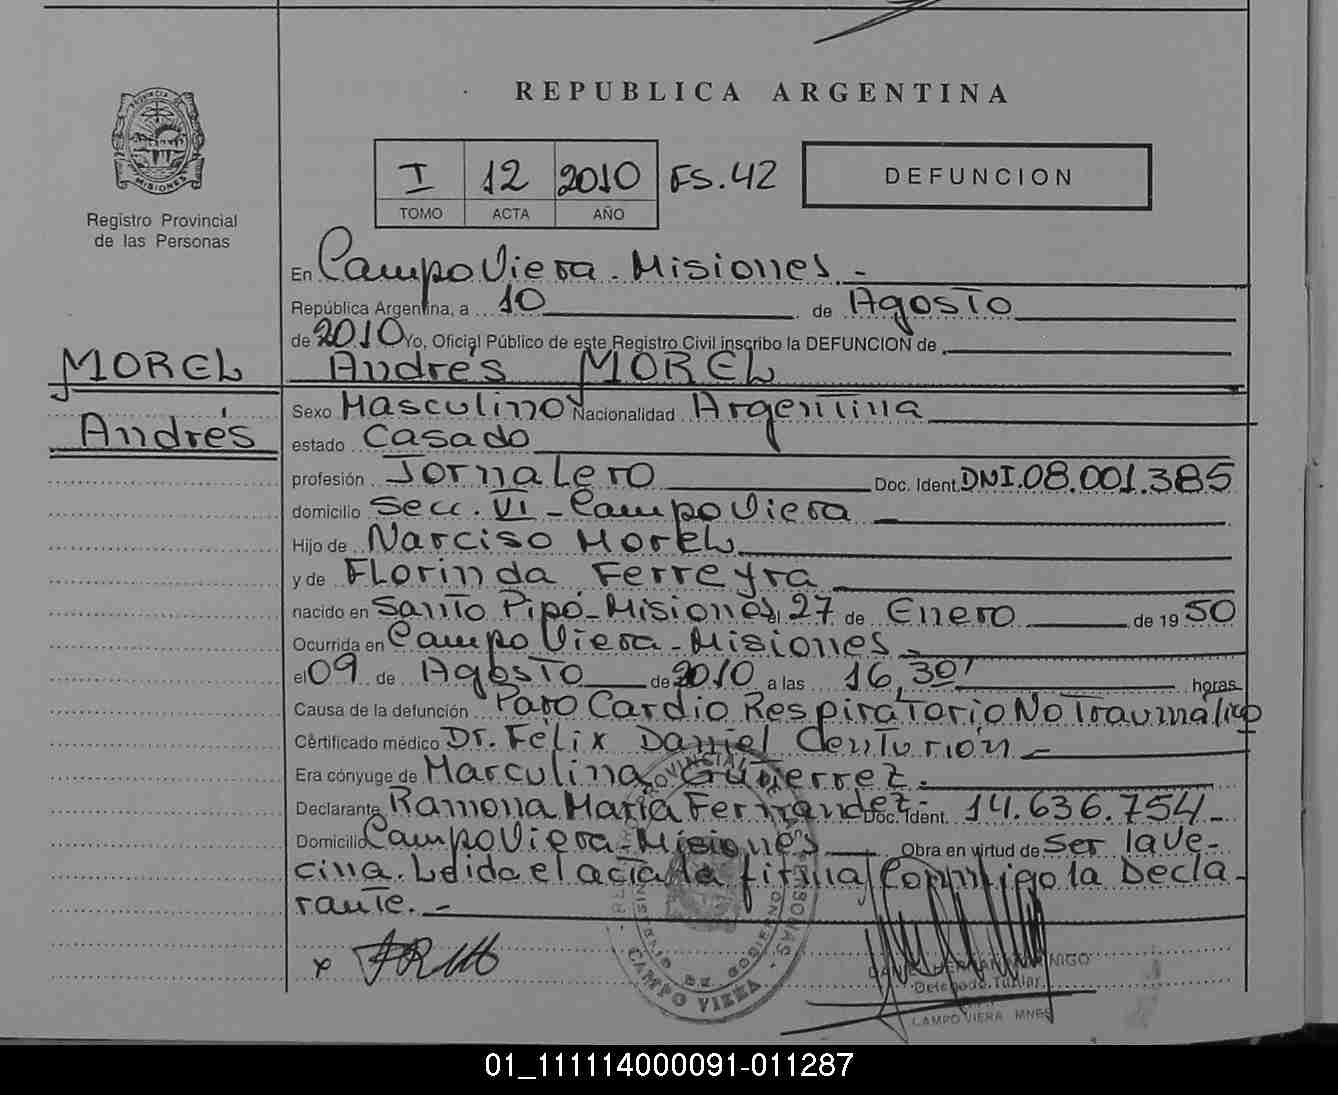 REPUBLICA ARGENTINA
PROVINCIA DE
MISIONES
Registro Provincial
de las Personas
I 12 2010 FS.42
TOMO ACTA AÑO
DEFUNCION
En Campo Viera - Misiones.-
República Argentina, a 10 de Agosto
de 2010 Yo, Oficial Público de este Registro Civil inscribo la DEFUNCION de
MOREL
Andrés
Andrés MOREL
Sexo Masculino Nacionalidad Argentina
estado Casado
profesión Jornalero Doc. Ident. DNI.08.001.385
domicilio Secc. VI - Campo Viera
Hijo de Narciso Morel
y de Florinda Ferreyra
nacido en Santo Pipó - Misiones el 27 de Enero de 1950
Ocurrida en Campo Viera - Misiones.-
el 09 de Agosto de 2010 a las 16,30' horas
Causa de la defunción Paro Cardio Respiratorio No Traumático
Certificado médico Dr. Félix Daniel Centurión
Era cónyuge de Marculina Gutierrez.
Declarante Ramona María Fernandez.- Doc. Ident. 14.636.754.-
Domicilio Campo Viera - Misiones Obra en virtud de Ser la Ve-
cina. Leida el acta la firma Conmigo la Decla-
rante.-
x
CAMPO VIERA
Delegado Titular
CAMPO VIERA MNES
01_111114000091-011287